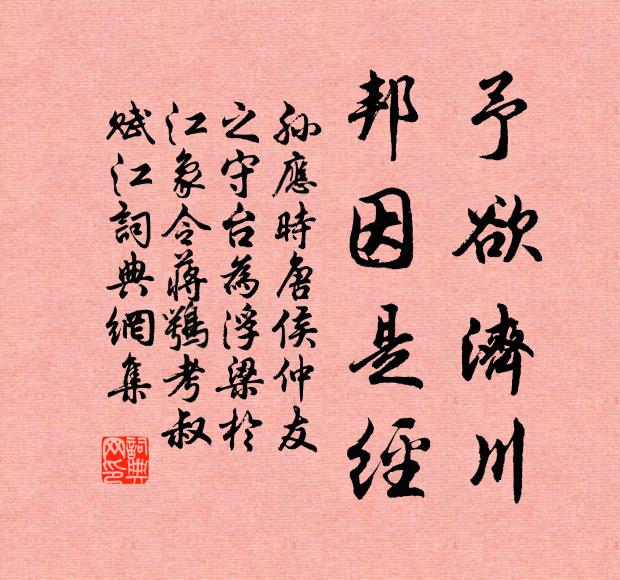 予欲濟川
邦因是經
孫應時唐侯仲友
之守台為浮梁於
江象令蔣鶚考叔
賦江詞典網集
詞典
网印